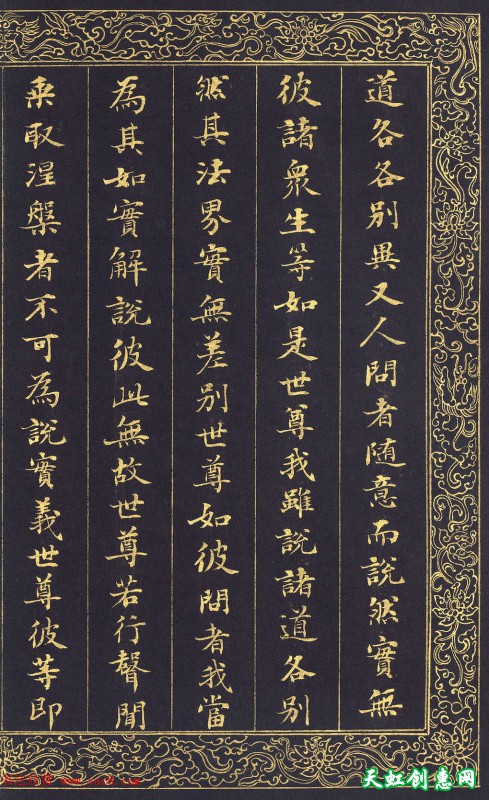 道各各別異又人問者随意而說然實無
彼諸眾生等如是世尊我雖說諸道各別
然其法界實無差別世尊如彼問者我當
為其如實解說彼此無故世尊若行聲聞
乘取涅槃者不可為說實義世尊彼等即
天虹创意网